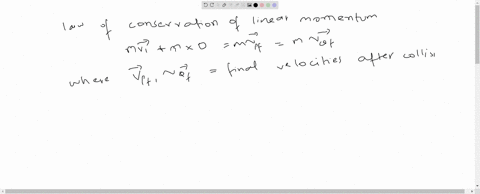 Law of conservation of linear momentum
m\vec{v_i} + m × 0 = m\vec{v}_{Pf} = m \vec{v}_{Qf}
where \vec{v}_{Pf}, \vec{v}_{Qf} = final velocities after collisi